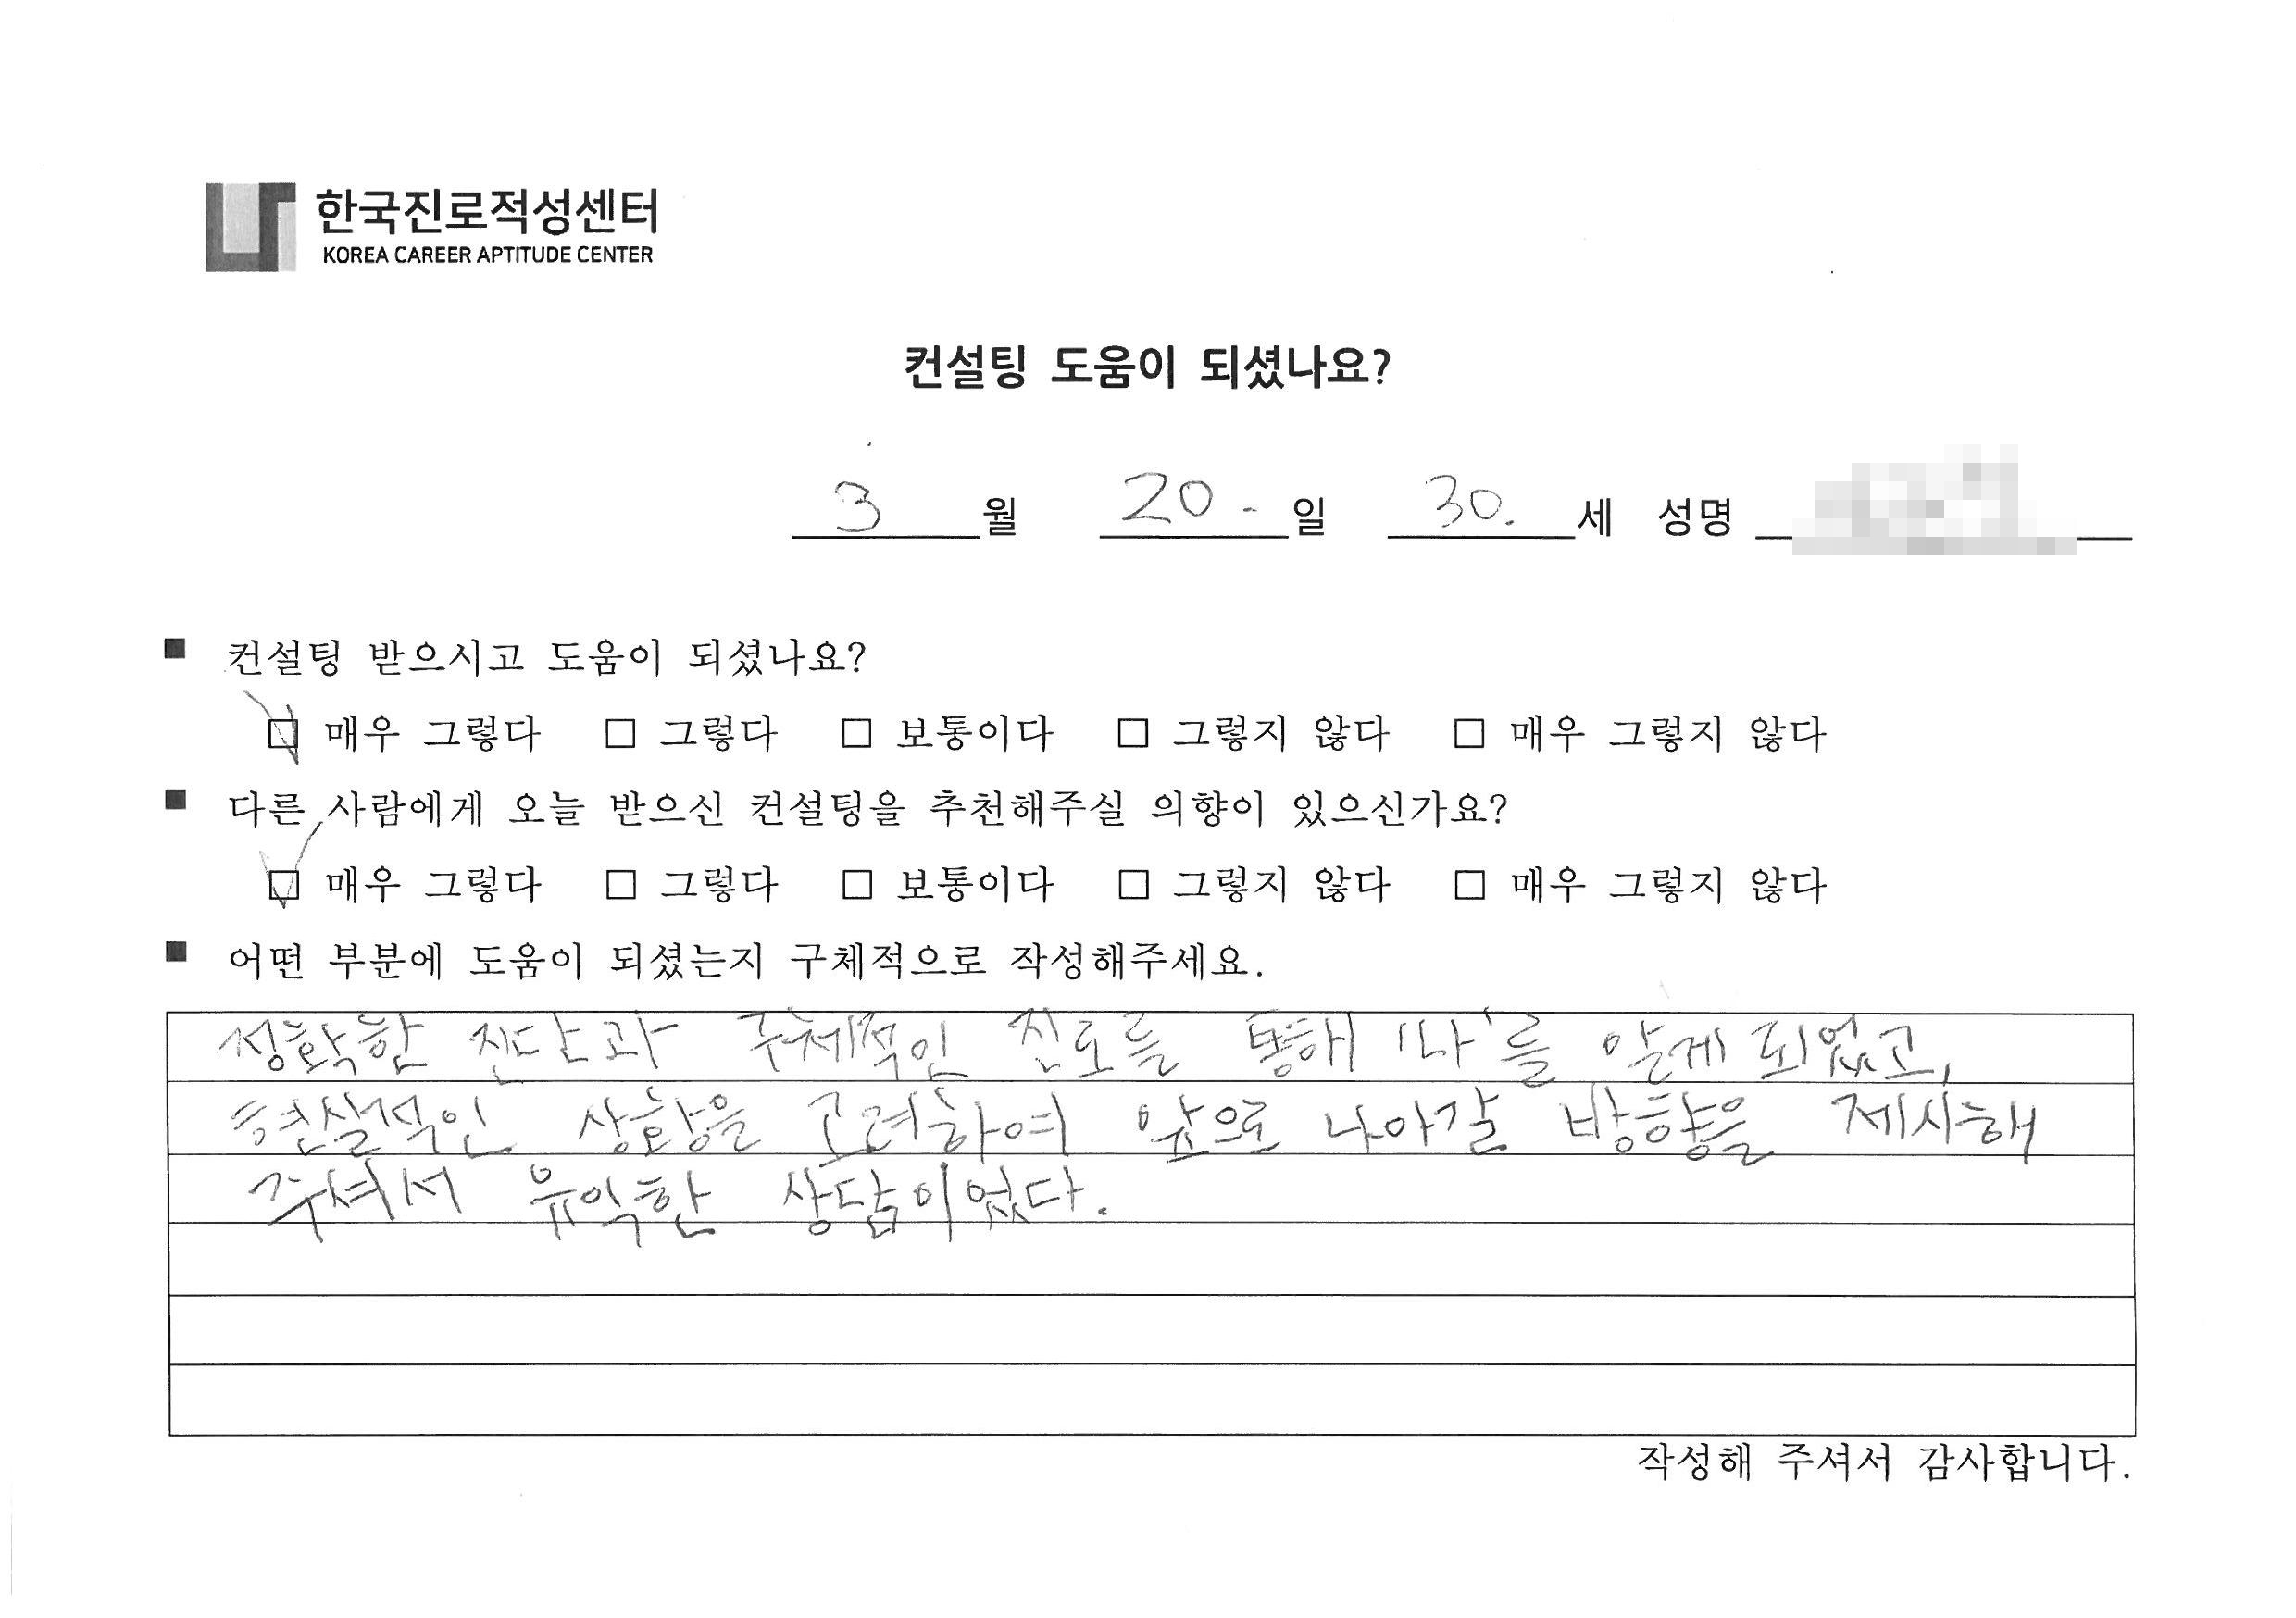 한국진로적성센터
KOREA CAREER APTITUDE CENTER
컨설팅 도움이 되셨나요?
3 월 20 일 30. 세 성명
■ 컨설팅 받으시고 도움이 되셨나요?
☑ 매우 그렇다 □ 그렇다 □ 보통이다 □ 그렇지 않다 □ 매우 그렇지 않다
■ 다른 사람에게 오늘 받으신 컨설팅을 추천해주실 의향이 있으신가요?
☑ 매우 그렇다 □ 그렇다 □ 보통이다 □ 그렇지 않다 □ 매우 그렇지 않다
■ 어떤 부분에 도움이 되셨는지 구체적으로 작성해주세요.
정확한 진단과 구체적인 진로를 통해 '나'를 알게 되었고,
현실적인 상황을 고려하여 앞으로 나아갈 방향을 제시해
주셔서 유익한 상담이었다.
작성해 주셔서 감사합니다.